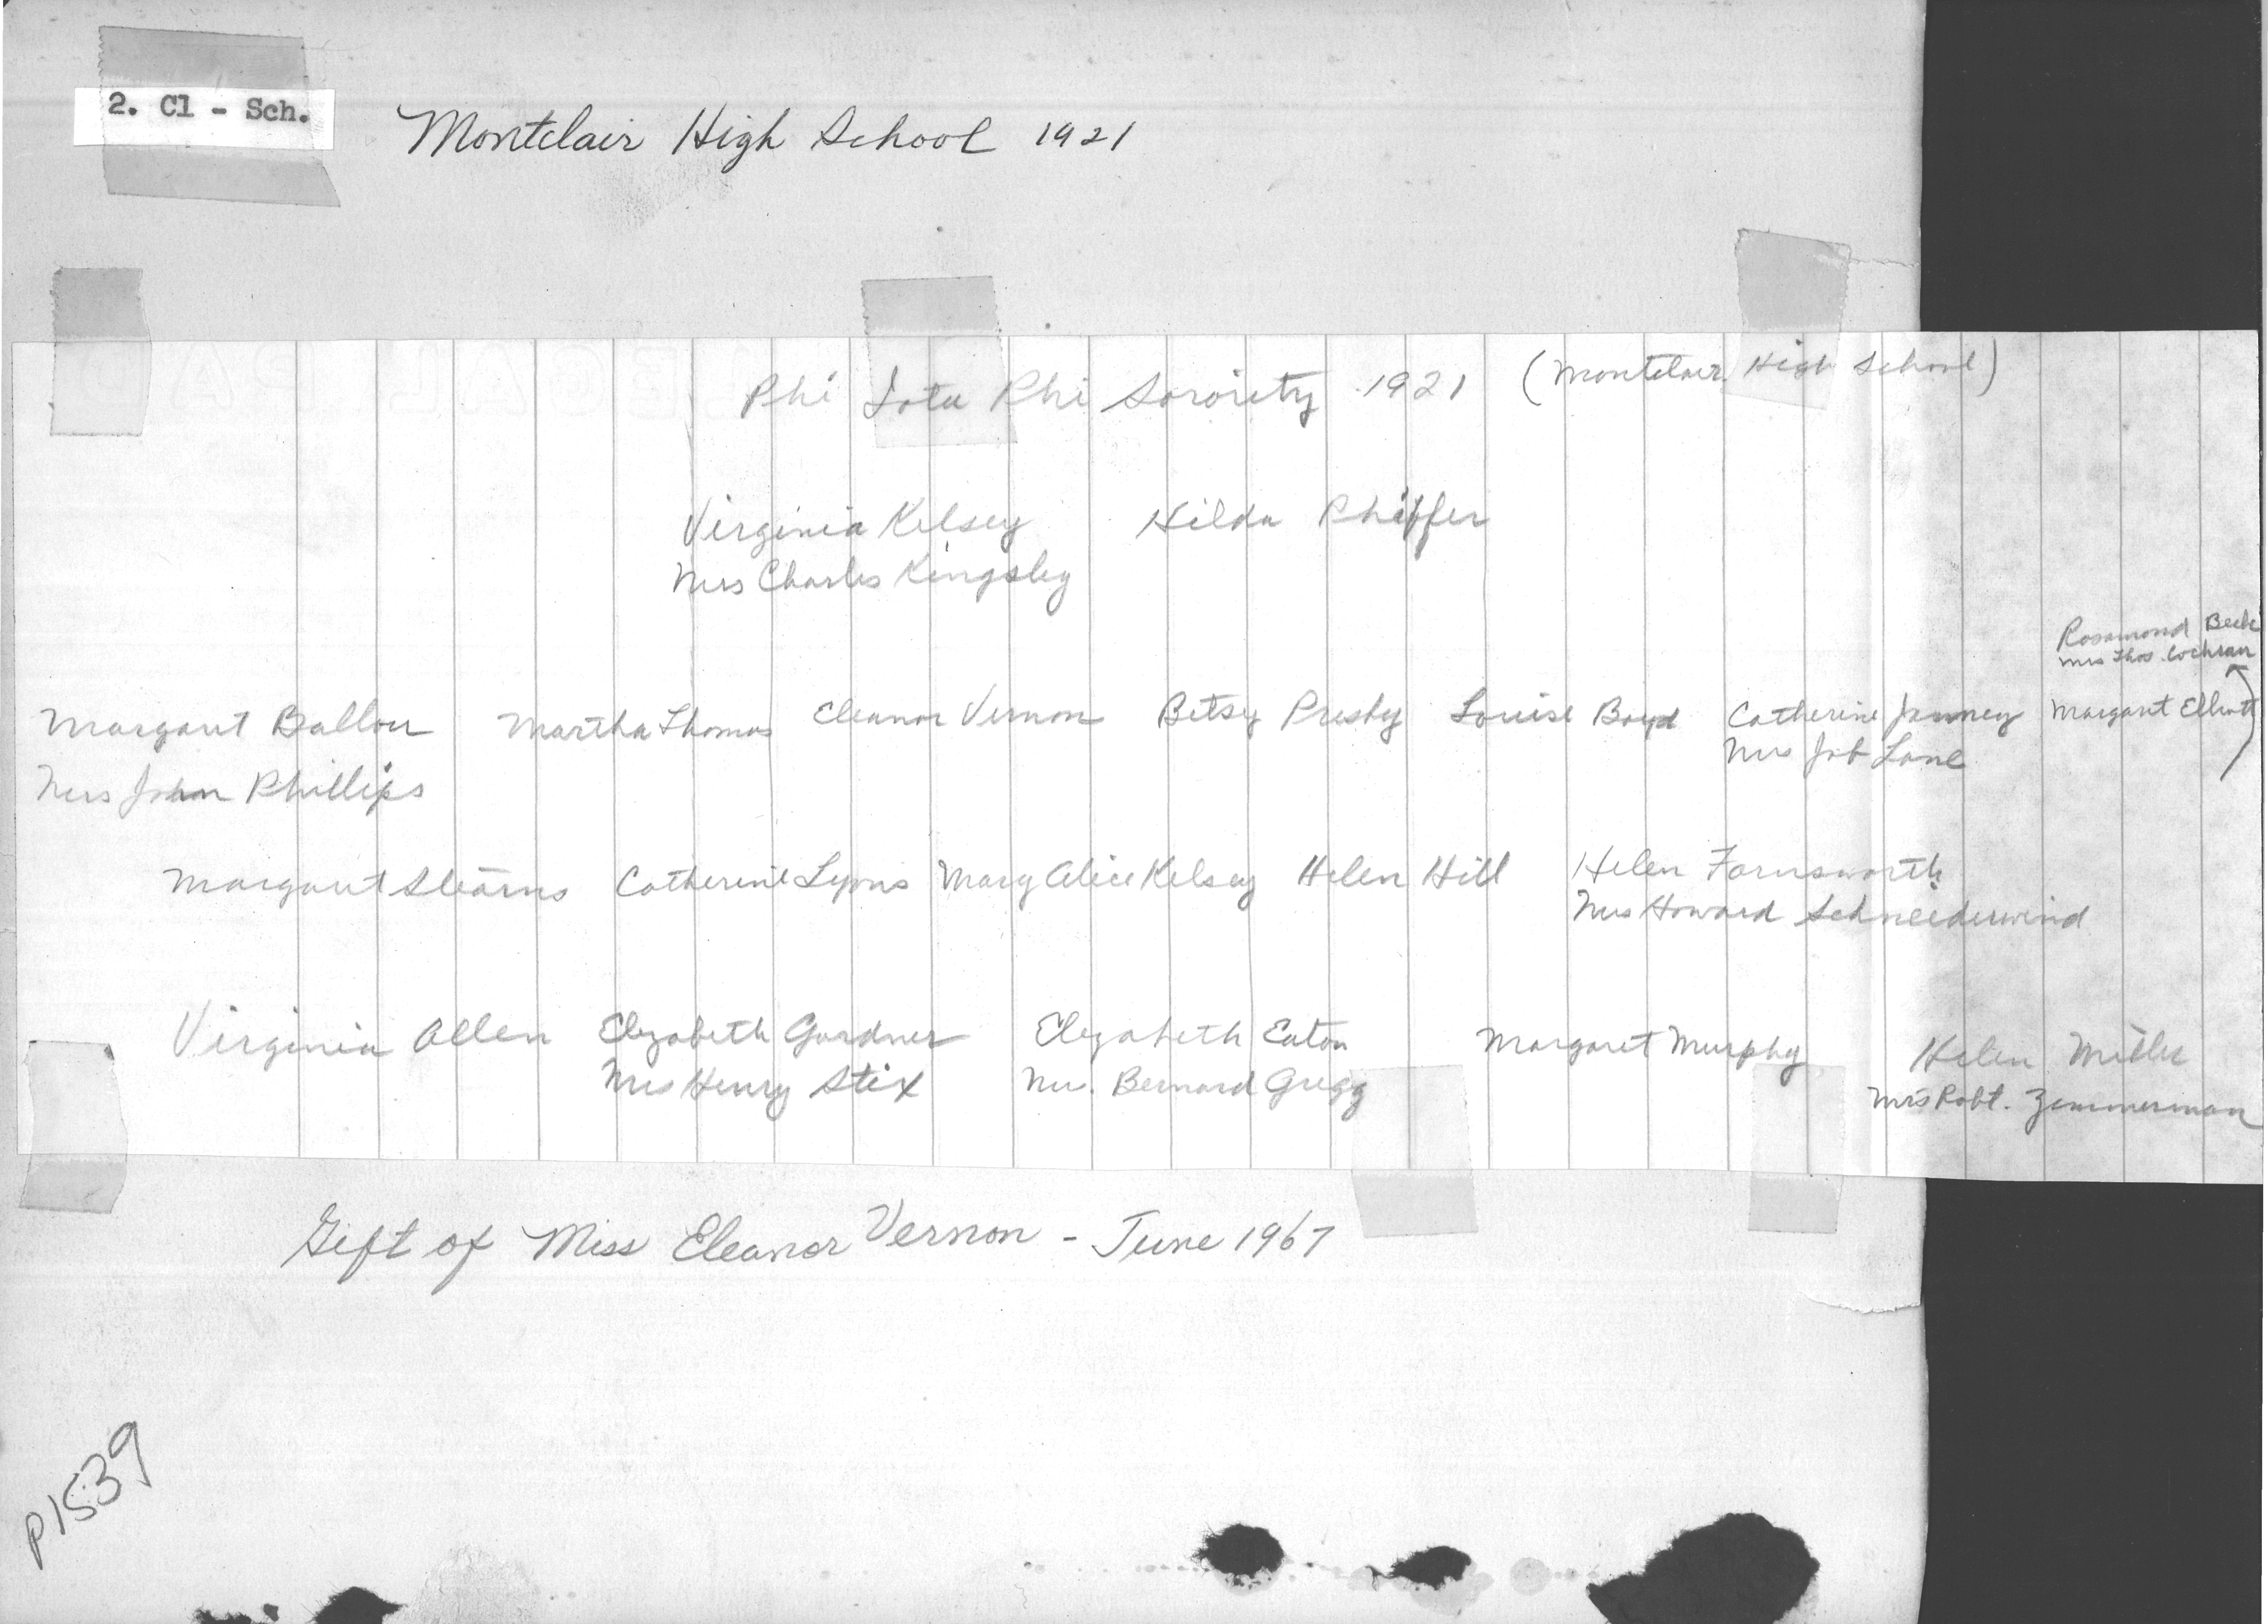 2. Cl - Sch.
Montclair High School 1921
Phi Iota Phi Sorority 1921 (Montclair High School)
Virginia Kelsey Hilda Phiffer
Mrs Charles Kingsley
Rosamond Beck
Mrs Thos. Cochran
Margaret Ballou Martha Thomas Eleanor Vernon Betsy Presby Louise Boyd Catherine Janney Margaret Elliott
Mrs John Phillips Mrs Job Lane
Margaret Stearns Catherine Lyons Mary Alice Kelsey Helen Hill Helen Farnsworth
Mrs Howard Schneiderwind
Virginia Allen Elizabeth Gardner Elizabeth Eaton Margaret Murphy Helen Miller
Mrs Henry Stix Mrs. Bernard Gregg Mrs Robt. Zimmerman
Gift of Miss Eleanor Vernon - June 1967
P1539